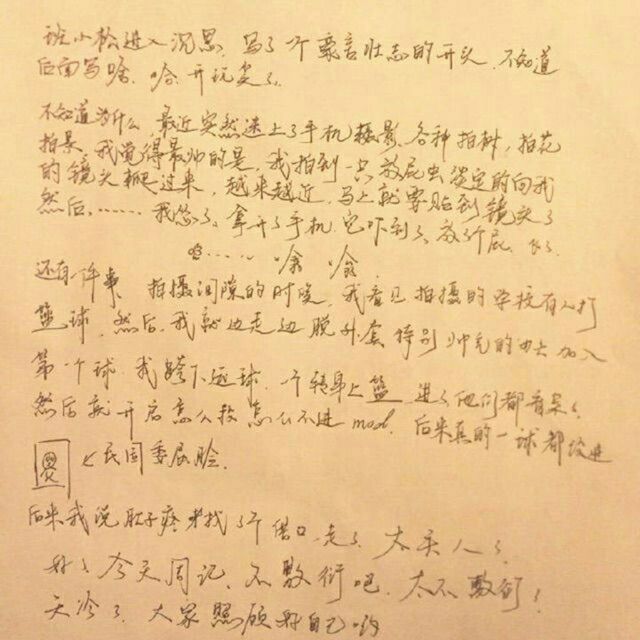 班小松进入沉思,写了个豪言壮志的开头,不知道
后面写啥,哈,开玩笑了。
不知道为什么,最近突然迷上了手机摄影,各种拍树,拍花
拍景,我觉得最帅的是,我拍到一只放屁虫淡定的向我
的镜头爬过来,越来越近,马上就要贴到镜头了
然后……我怂了。拿开了手机,它吓到了,放了个屁,飞了。
哈 哈
还有一件事 拍摄间隙的时候,我看见拍摄的学校有人打
篮球,然后,我就边走边脱外套特别帅气的加入
第一个球,我胯下运球,一个转身上篮,进了他们都看呆了。
然后就开启怎么投怎么不进mod,后来真的一球都没进
←民国委屈脸。
后来我说肚子疼找了个借口,走了,太丢人了。
好了今天周记,不敷衍吧,太不敷衍!
天冷了,大家照顾好自己哟